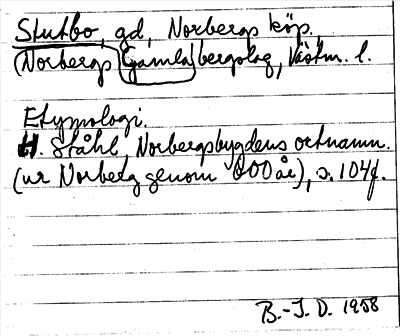 Stutbo, gd, Norbergs köp.,
(Norbergs Gamla bergslag, Västm. l.
Etymologi.
H. Ståhl, Norbergsbygdens ortnamn.
(ur Norberg genom 600 år), s. 104f.
B.-I. D. 1958